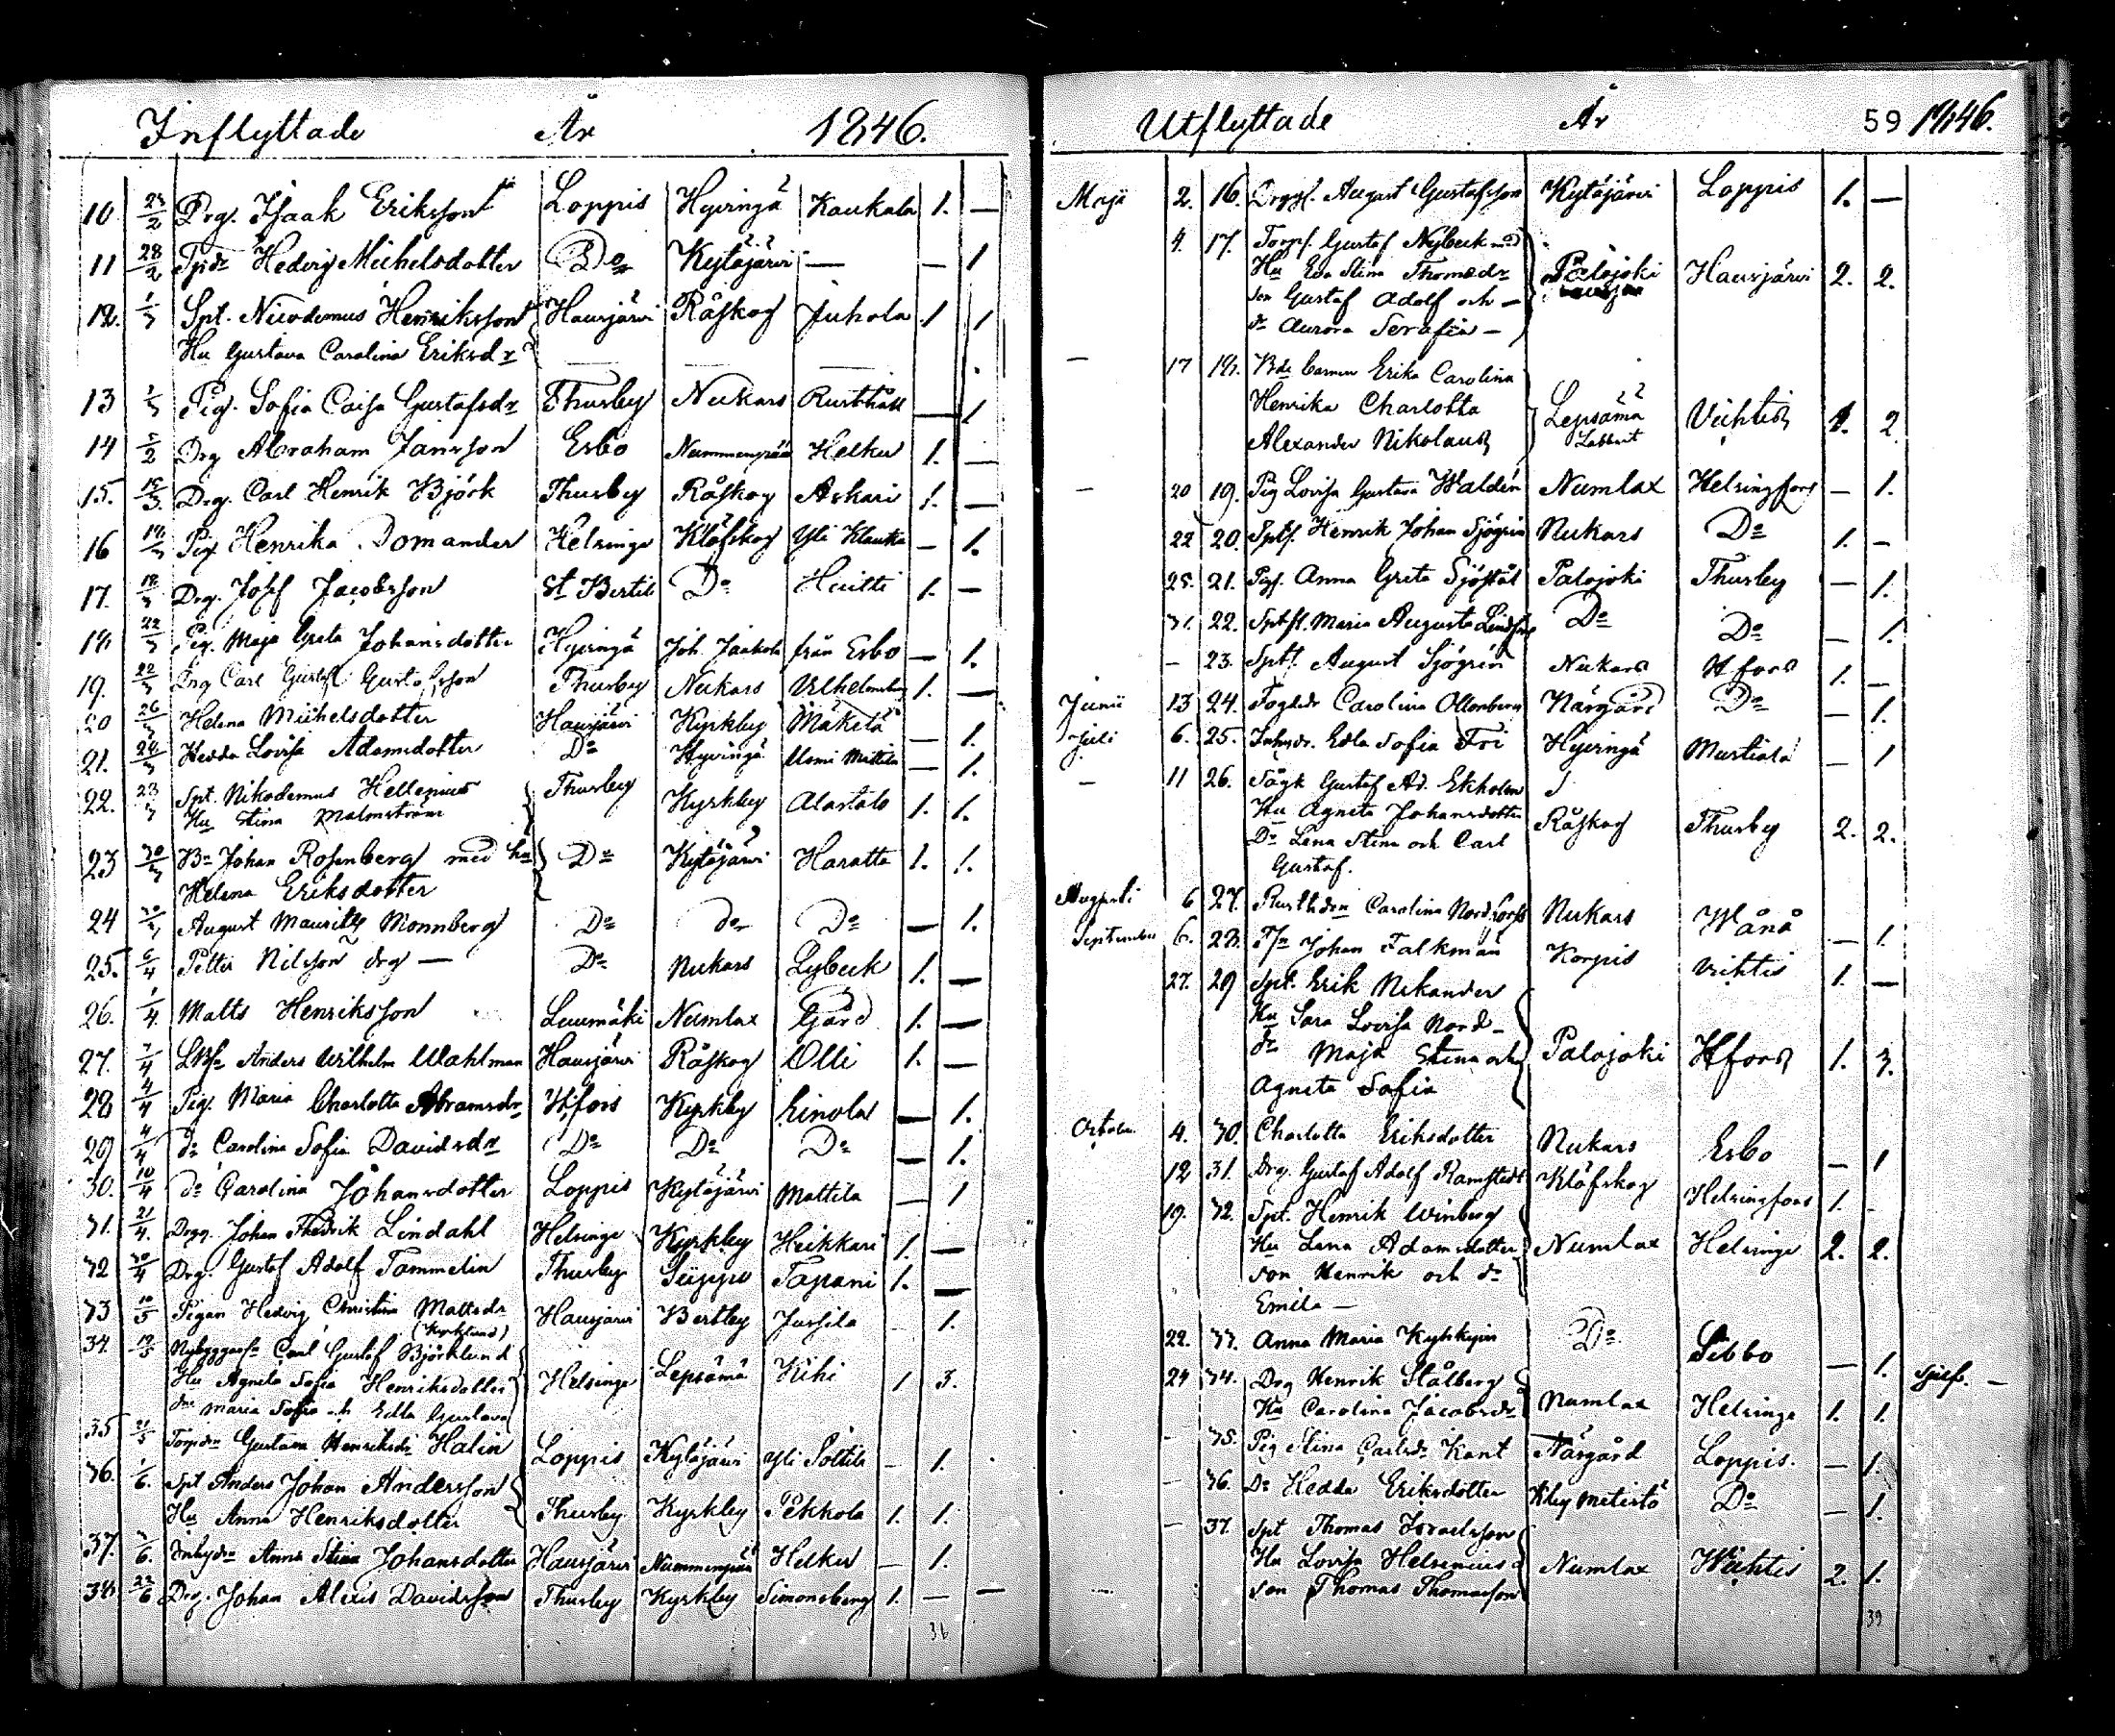 Inflyttade År 1846.
10 23/2 Drg. Isaak Eriksson Loppis Hyvingä Kaukala 1. —
11 28/2 Tpdr Hedvig Michelsdotter Do Kytäjärvi — — 1
12. 1/3 Spt. Nicodemus Henriksson Hausjärvi Råskog Juhola 1 1
Hu Gustava Carolina Eriksdr
13 1/3 Pig. Sofia Caisa Gustafsdr Thusby Nukars Rusthåll — 1
14 2/2 Drg Abraham Jansson Esbo Nummenpää Helku 1. —
15. 15/3. Drg. Carl Henrik Björk Thusby Råskog Askari 1. —
16 18/3 Pig Henrika Domander Helsinge Klöfskog Yli Klauka — 1.
17. 18/3 Drg. Josef Jacobsson St Bertils Do Huitti 1. —
18. 22/3 Pig. Maja Greta Johansdotter Hyvingä Joh. Jaakola från Esbo — 1.
19. 22/3 Drg Carl Gustaf Gustafsson Thusby Nukars Vilhelmsberg 1. —
20 26/3 Helena Michelsdotter Hausjärvi Kyrkby Mäkelä — 1.
21. 28/3 Hedda Lovisa Adamsdotter Do Hyvingä Uomi Mattila — 1.
22. 23/3 Spt. Nikodemus Hellenius Thusby Kyrkby Alastalo 1. 1.
Hu Stina Malmström
23 30/3 Bn Johan Rosenberg med hu Do Kytäjärvi Haratta 1. 1.
Helena Eriksdotter
24 30/3 August Mauritz Monnberg Do do Do — 1.
25. 6/4 Petter Nilsson drg — Do Nukars Lybeck 1. —
26. 1/4. Matts Henriksson Luumäki Numlax Gård 1. —
27. 7/4 Anders Wilhelm Wahlman Hausjärvi Råskog Olli 1. —
28 4/4 Pig. Maria Charlotta Abramsdr Hfors Kyrkby Einola — 1.
29 4/4 do Carolina Sofia Davidsdr Do Do Do — 1.
30. 10/4 do Carolina Johansdotter Loppis Kytäjärvi Mattila — 1
31. 21/4. Drg. Johan Fredrik Lindahl Helsinge Kyrkby Heikkari 1. —
32 30/4 Drg. Gustaf Adolf Tammelin Thusby Siippo Tapani 1. —
33 10/5 Pigan Hedvig Christina Mattsdr Hausjärvi Bertby Jussila — 1.
(Kyrklund)
34. 19/5 Nybyggars Carl Gustaf Björklund
Hu Agneta Sofia Henriksdotter Helsinge Lepsämä Kihi 1 3.
Maria Sofia och Edla Gustava
35 21/5 Torpdr Gustava Henriksdr Halin Loppis Kytäjärvi Yli Solttila — 1.
36. 1/6. Spt Anders Johan Andersson
Hu Anna Henriksdotter Thusby Kyrkby Pekkola 1. 1.
37. 7/6. Inhysdr Anna Stina Johansdotter Hausjärvi Nummenpää Helku — 1.
38. 22/6 Drg. Johan Alexis Davidsson Thusby Kyrkby Simonsberg 1. — —
36
Utflyttade År 59 1846.
Maji 2. 16. August Gustafsson Kytäjärvi Loppis 1. —
4. 17. Torp. Gustaf Nybeck med
Hu Eva Stina Thomedr Palojoki Hausjärvi 2. 2.
son Gustaf Adolf och —
dr Aurora Serafia —
— 17 18. Barnen Erika Carolina
Henrika Charlotta Lepsämä Vichtis 1. 2.
Alexander Nikolaus
— 20 19. Pig Lovisa Gustava Waldén Numlax Helsingfors — 1.
22 20. Spts. Henrik Johan Sjögrén Nukars Do 1. —
25. 21. Pig. Anna Greta Sjöståt Palojoki Thusby — 1.
31. 22. Maria Augusta Do Do — 1.
— 23. Spt. August Sjögrén Nukars Hfors 1. —
Junii 13 24. Fogtdr Carolina Ollonberg Närgård Do — 1.
Juli 6. 25. Inhysdr. Edla Sofia Fri Hyvingä Mustiala — 1
— 11 26. Gustaf Ad. Ekholm
Hu Agneta Johansdotter Råskog Thusby 2. 2.
Dr Lena Stina och Carl
Gustaf.
Augusti 6 27. Carolina Nukars Wånå — 1.
September 6. 28. Johan Falkman Korpis Vihtis 1. —
27. 29 Spt. Erik Nikander
Hu Sara Lovisa Nord-
dr Maja Stina och Palojoki Hfors 1. 3.
Agneta Sofia
October 4. 30. Charlotta Eriksdotter Nukars Esbo — 1
12 31. Drg. Gustaf Adolf Ramstedt Klöfskog Helsingfors 1. —
19. 32. Spt. Henrik Winberg
Hu Lena Adamsdotter Numlax Helsinge 2. 2.
son Henrik och dr
Emila —
22. 33. Anna Maria Kyhkyin Do Sibbo — 1.
24 34. Drg Henrik Stålberg
Hu Carolina Jacobsdr Numlax Helsinge 1. 1.
— 35. Pig Stina Carlsdr Kant Närgård Loppis. — 1.
— 36. Do Hedda Eriksdotter Kby Do — 1.
— 37. Spt Thomas Israelsson
Hu Lovisa Helsenius Numlax Wichtis 2. 1.
son Thomas Thomasson
39